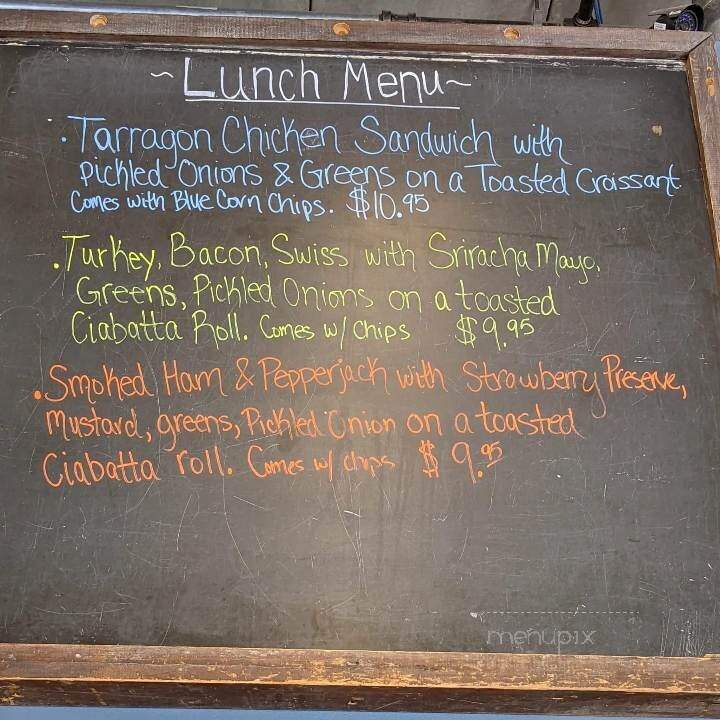 ~Lunch Menu~
· Tarragon Chicken Sandwich with
Pickled Onions & Greens on a Toasted Croissant.
Comes with Blue Corn Chips. $10.95
· Turkey, Bacon, Swiss with Sriracha Mayo,
Greens, Pickled Onions on a toasted
Ciabatta Roll. Comes w/ chips $9.95
· Smoked Ham & Pepperjack with Strawberry Preserve,
Mustard, greens, Pickled Onion on a toasted
Ciabatta roll. Comes w/ chips $9.95
menupix